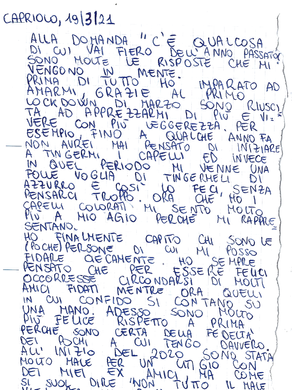 CAPRIOLO, 19/3/21
ALLA DOMANDA "C'È QUALCOSA
DI CUI VAI FIERO DELL'ANNO PASSATO"
SONO MOLTE LE RISPOSTE CHE MI
VENGONO IN MENTE.
PRIMA DI TUTTO HO IMPARATO AD
AMARMI, GRAZIE AL PRIMO
LOCKDOWN DI MARZO SONO RIUSCI
TA AD APPREZZARMI DI PIÙ E VI=
VERE CON PIÙ LEGGEREZZA. PER
ESEMPIO FINO A QUALCHE ANNO FA
NON AUREI MAI PENSATO DI INIZIARE
A TINGERMI I CAPELLI ED INVECE
IN QUEL PERIODO MI VENNE UNA
FOLLE VOGLIA DI TINGERMELI DI
AZZURRO E COSÌ LO FECI, SENZA
PENSARCI TROPPO. ORA CHE HO I
CAPELLI COLORATI MI SENTO MOLTO
PIÙ A MIO AGIO PERCHÈ MI RAPPRE
SENTANO.
HO FINALMENTE CAPITO CHI SONO LE
(POCHE) PERSONE DI CUI MI POSSO
FIDARE CIECAMENTE. HO SEMPRE
PENSATO CHE PER ESSERE FELICI
OCCORRESSE CIRCONDARSI DI MOLTI
AMICI FIDATI MENTRE ORA QUELLI
IN CUI CONFIDO SI CONTANO SU
UNA MANO. ADESSO SONO MOLTO
PIÙ FELICE RISPETTO A PRIMA
PERCHÈ SONO CERTA DELLA FEDELTÀ
DEI POCHI A CUI TENGO DAVVERO.
ALL'INIZIO DEL 2020 SONO STATA
MOLTO MALE PER UN LITIGIO CON
DEI MIEI EX AMICI MA COME
SI SUOL DIRE "NON TUTTO IL MALE